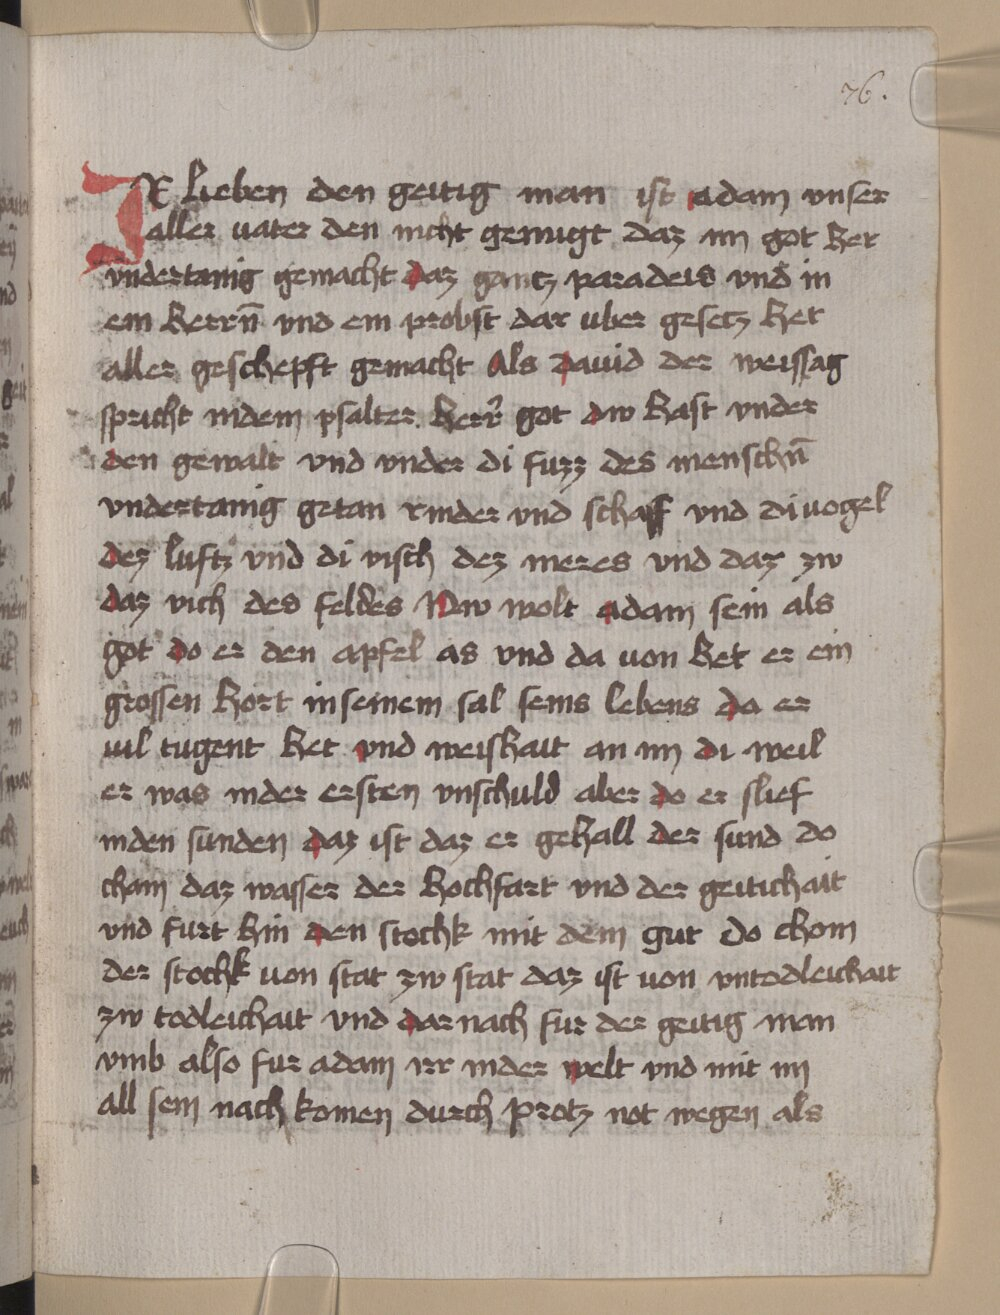 76.
Ir lieben den geitig man ist adam vnser
aller vater den nicht genugt daz im got het
vndertanig gemacht daz gantz paradeis vnd in
ein herrn̄ vnd ein probst dar uber gesetz het
aller geschepft gemacht Als dauid der weissag
spricht indem psalter herr got dw hast vnder
den gewalt vnd vnder di fuzz des menschn̄
vndertanig getan rinder vnd schaff vnd di vogel
dez luftz vnd di visch dez meres vnd daz zw
daz vich des feldes Now wolt adam sein als
got do er den apfel as vnd da von het er ein
grossen hort in seinem sal seins lebens da er
vil tugent het vnd weishait an im di weil
er was inder ersten vnschuld aber do er slief
inden sunden daz ist daz er gehall der sund do
cham daz wasser der hochfart vnd der geitichait
vnd furt hin den stochk mit dem gut do chom
der stochk von stat zw stat daz ist von vntodleichait
zw todleichait vnd dar nach fur der geitig man
vmb also fur adam irr inder welt vnd mit im
all sein nach komen durch protz not wegen als